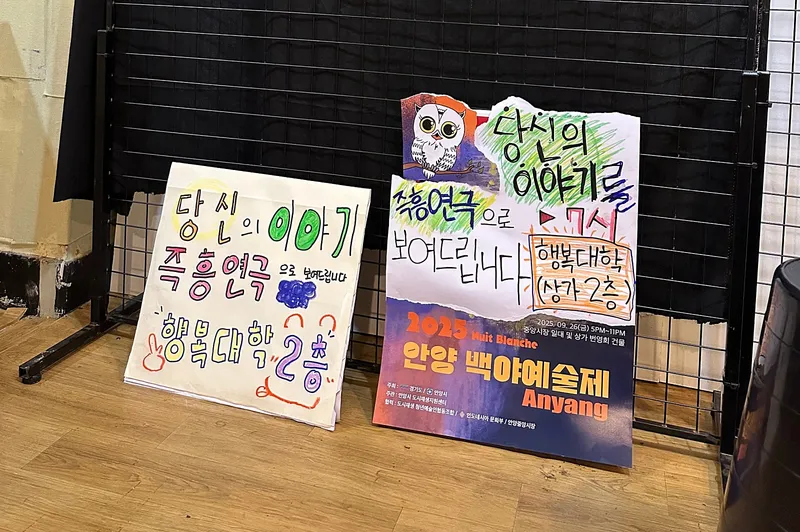 당신의 이야기
즉흥연극으로 보여드립니다
행복대학 2층
당신의
이야기를
즉흥연극으로 ▶7시
보여드립니다
행복대학
(상가 2층)
2025. 09. 26(금) 5PM~11PM
중앙시장 일대 및 상가 번영회 건물
2025 Nuit Blanche
안양 백야예술제
Anyang
주최 : 경기도 / 안양시
주관 : 안양시 도시재생지원센터
협력 : 도시재생 청년예술인협동조합 / 인도네시아 문화부 / 안양중앙시장